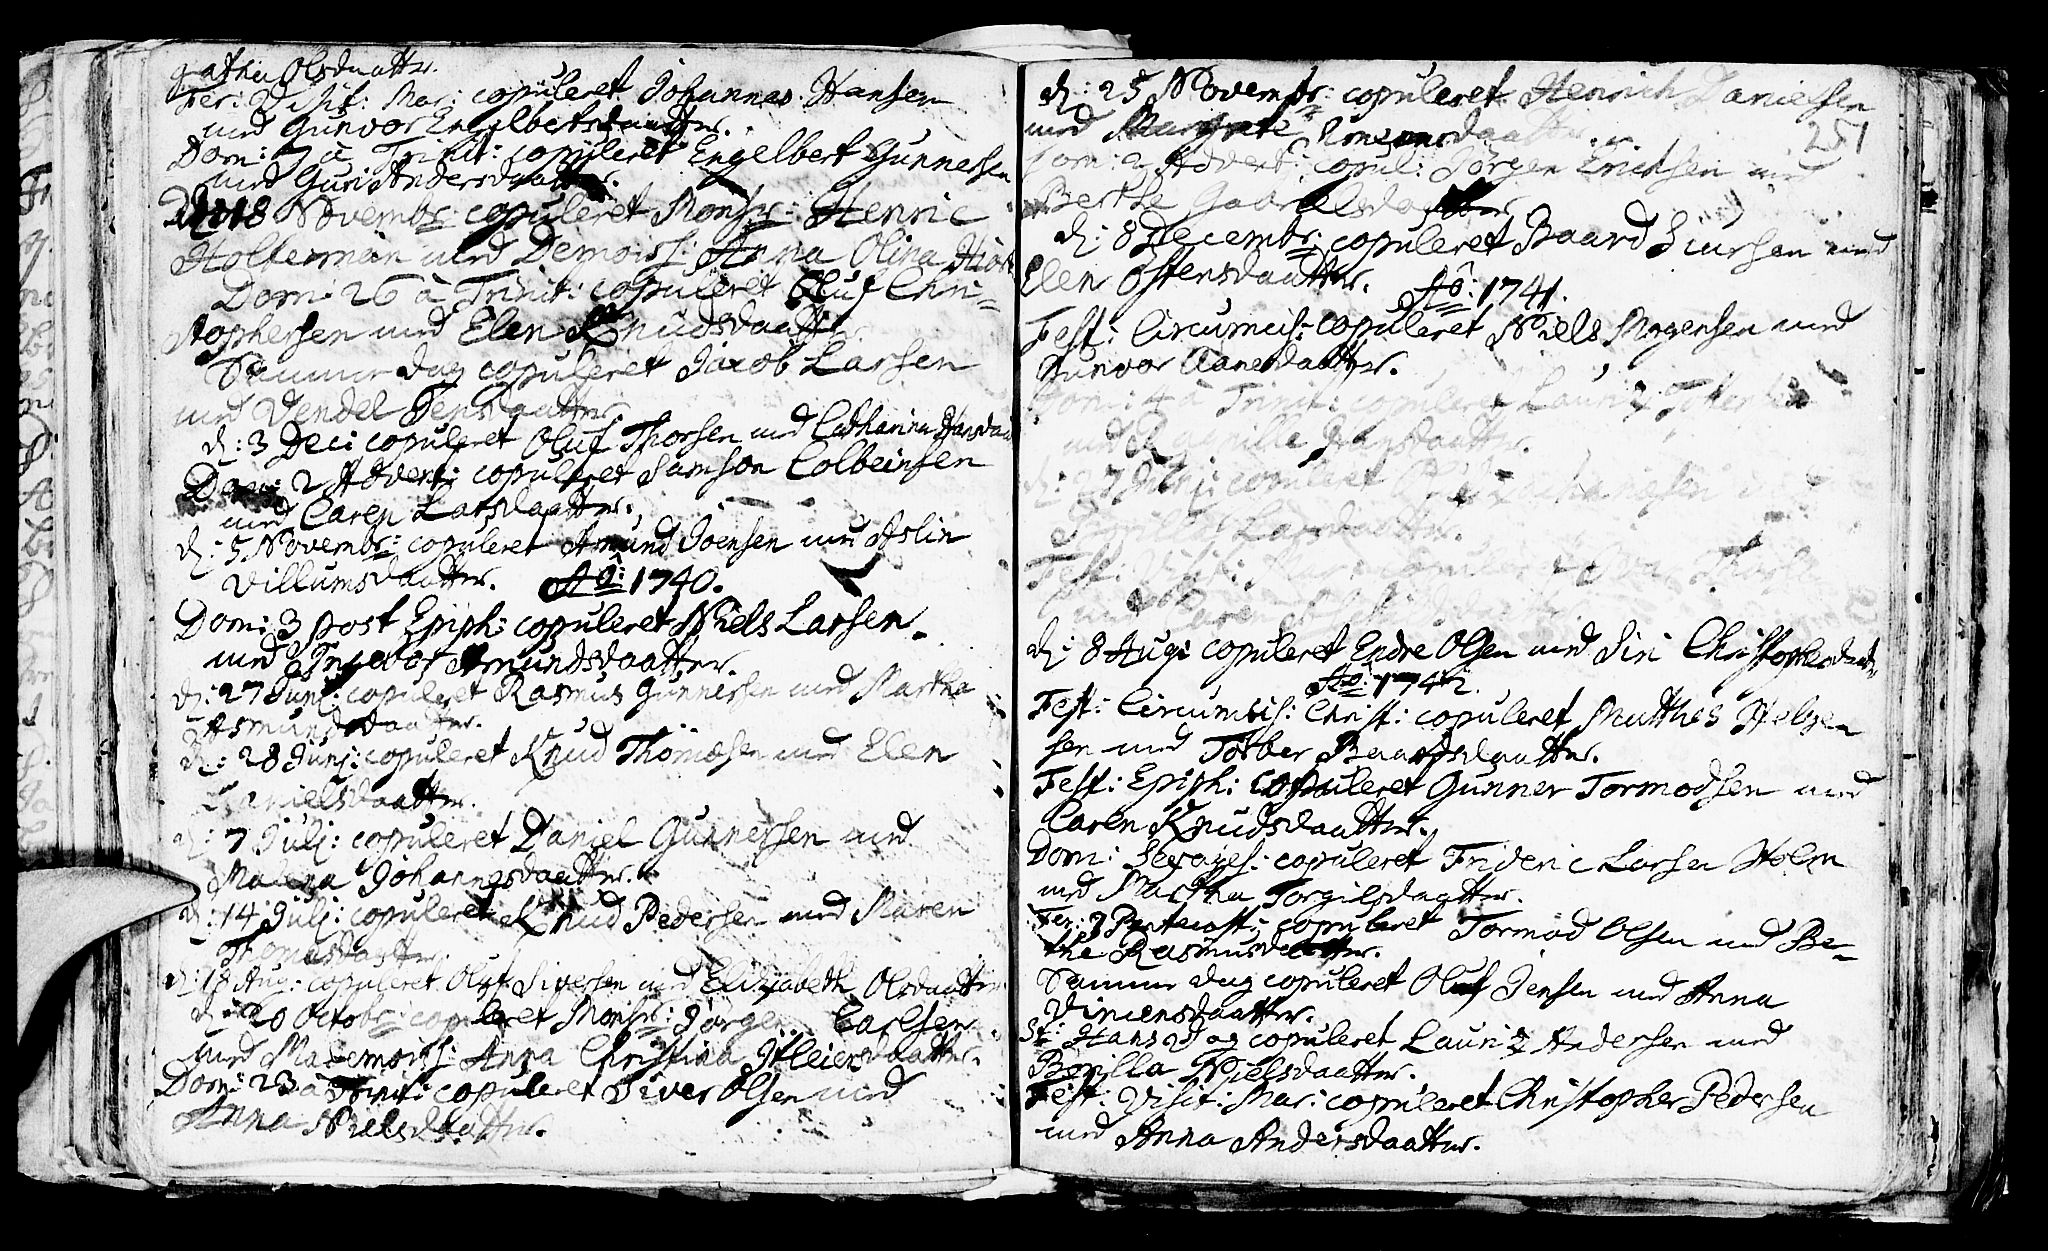 gatha Olsdaatter.
Fer: Visit: Mar: copuleret Johannes Hansen
med Gunvor Engelbertsdaatter.
Dom: 7 à Trinit: copuleret Engelbert Gunnersen
med Guri Andersdaatter.
18 Novembr: copuleret Monsr: Henric
Holterman med Demoiss: Anna Olina
Dom: 26 à Trinit: copuleret Oluf Chri-
stophersen med Elen Knudsdaatter
Samme dag copuleret Jacob Larsen
med Vendel Jensdaatter
d: 3 Dec: copuleret Oluf Thorsen med Catharina
Dom: 2 Advent: copuleret Samson Colbeinsen
med Caren Larsdaatter.
d: 5 Novembr: copuleret Amund Joensen med Aslin
Villumsdaatter. Aô: 1740.
Dom: 3 post Epiph: copuleret Niels Larsen
med Ingebor Amundsdaatter.
d: 27 Junj: copuleret Rasmus Gunnersen med Martha
Asmundsdaatter.
d: 28 Junj: copuleret Knud Thomæsen med Elen
Danielsdaatter.
d: 7 Julj: copuleret Daniel Gunnersen med
Malena Johannesdaatter.
d: 14 Julj: copuleret Knud Pedersen med Maren
Thomasdaatter.
d: 18 Aug: copuleret Oluf Siversen med Elizabeth Olsdaatter
d: 20 Octobr: copuleret Monsr: Jørgen Carlsen
med Mademoiss: Anna Christina Meiersdaatter.
Dom: 23 à Trinit: copuleret Siver Olsen med
Anna Nielsdaatter.
d: 25 Novembr: copuleret Henrich Danielsen
med Margrete daatter
251
Dom: 2 Advent: copul: Jørgen Erichsen med
Berthe Gabrielsdaatter
d: 8 Decembr: copuleret Baard Siursen med
Elen Østensdaatter. Aô: 1741.
Fest: Circumcis: copuleret Niels Mogensen med
Gunvor Aanensdaatter.
Dom: 4 à Trinit: copuleret Lauriz
med daatter.
d: 7 copuleret
Larsdaatter.
Fest: Visit: Mar: copuleret
med
d: 8 Aug: copuleret Endre Olsen med Siri Christophersdaatter
Aô: 1742.
Fest: Circumcis: Christ: copuleret Matthes Helge
sen med Torber Baardsdaatter.
Fest: Epiph: copuleret Gunner Tormodsen med
Caren Knudsdaatter.
Dom: Sexages: copuleret Frideric Larsen Holm
med Martha Torgilsdaatter.
Fer: 3 Pentecost: copuleret Tormod Olsen med Be-
the Rasmusdaatter.
Samme dag copuleret Oluf Jensen med Anna
daatter.
St: Hans dag copuleret Lauriz Andersen med
Bonilla Nielsdaatter.
Fest: Visit: Mar: copuleret Christopher Pedersen
med Anna Andersdaatter.